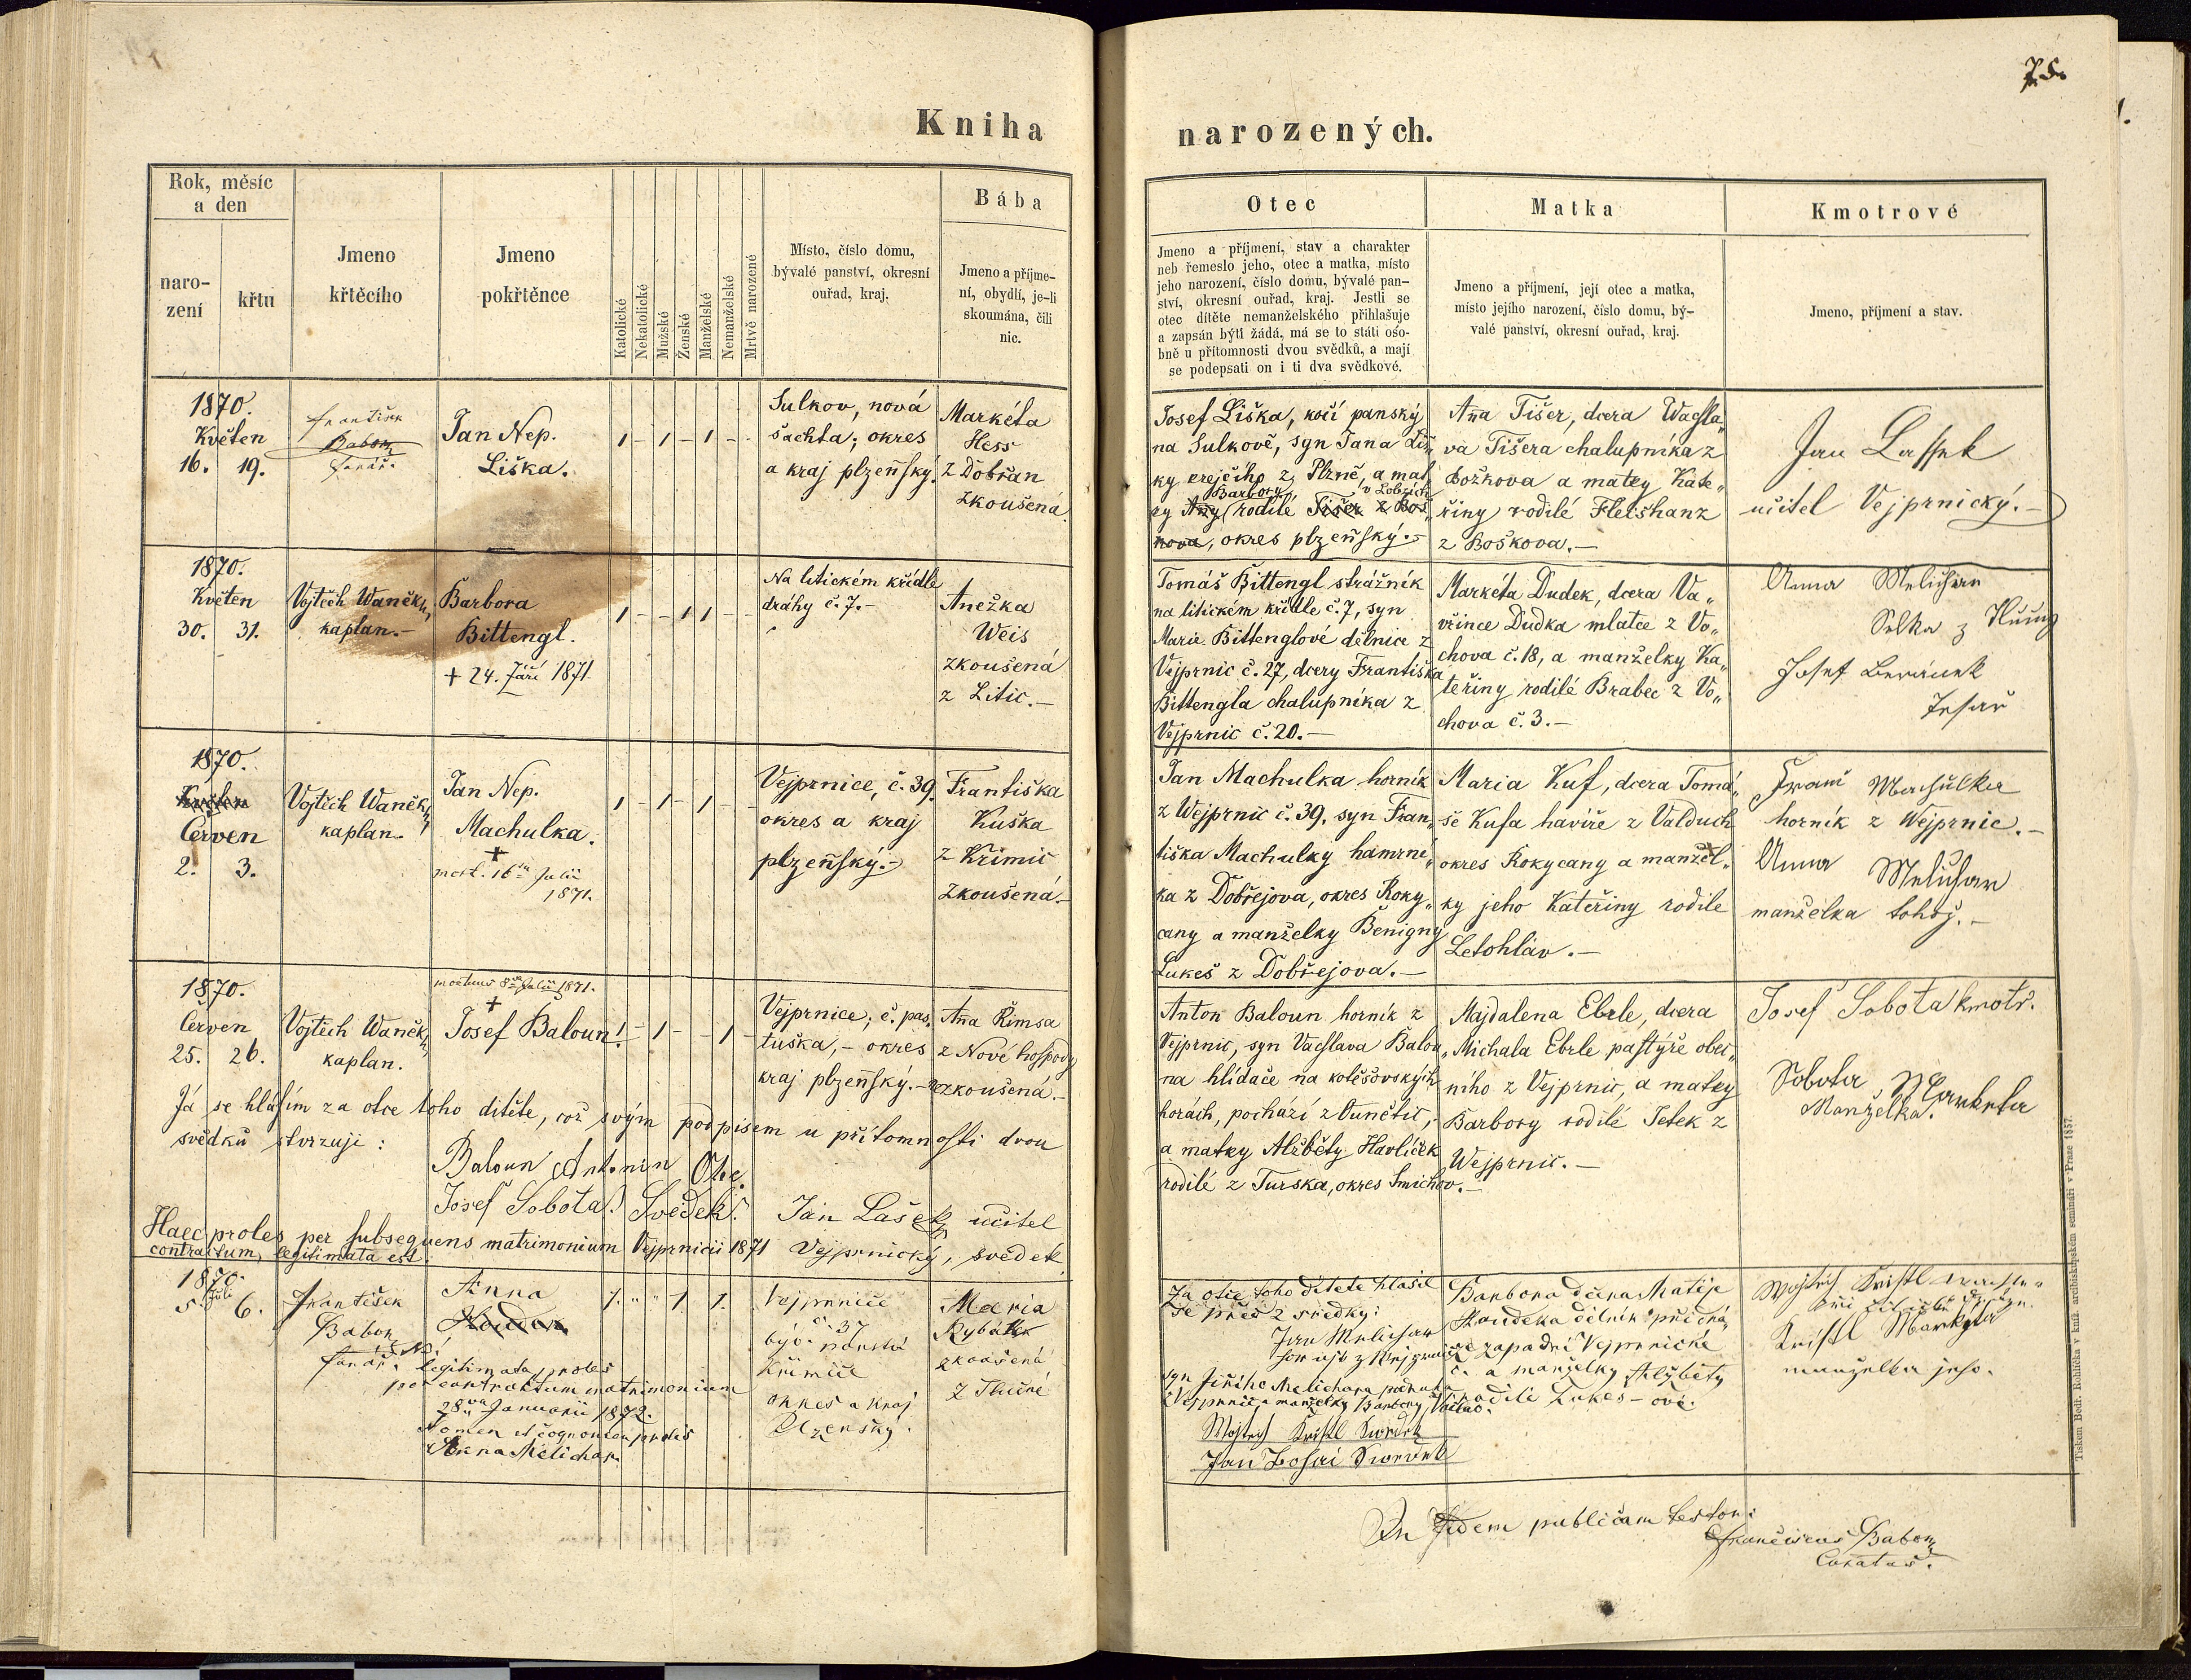 75.
Kniha narozených.
Rok, měsíc
a den
naro-
zení
křtu
Jmeno
křtěcího
Jmeno
pokřtěnce
Katolické
Nekatolické
Mužské
Ženské
Manželské
Nemanželské
Mrtvě narozené
Místo, číslo domu,
bývalé panství, okresní
ouřad, kraj.
Bába
Jmeno a příjme-
ní, obydlí, je-li
skoumána, čili
nic.
Otec
Jmeno a příjmení, stav a charakter
neb řemeslo jeho, otec a matka, místo
jeho narození, číslo domu, bývalé pan-
ství, okresní ouřad, kraj. Jestli se
otec dítěte nemanželského přihlašuje
a zapsán býti žádá, má se to státi oso-
bně u přítomnosti dvou svědků, a mají
se podepsati on i ti dva svědkové.
Matka
Jmeno a příjmení, její otec a matka,
místo jejího narození, číslo domu, bý-
valé panství, okresní ouřad, kraj.
Kmotrové
Jmeno, příjmení a stav.
1870.
Květen
16. 19.
František
Babor
farář.
Jan Nep.
Liška.
1 - 1 - 1 - -
Sulkov, nová
šachta; okres
a kraj plzeňský.
Markéta
Hess
z Dobřan
zkoušená.
Josef Liška, kočí panský
na Sulkově, syn Jana Liš„
ky krejčího z Plzně, a mat„
Barbory v Lobzích
ky Anny rodilé Tišer z Bož„
kova, okres plzeňský.-
Anna Tišer, dcera Wacsla„
va Tišera chalupníka z
Božkova a matky Kate„
řiny rodilé Fleishanz
z Boškova.-
Jan Lassek
učitel Vejprnický.-
1870.
Květen
30. 31.
Vojtěch Waněk,
kaplan.-
Barbora
Bittengl.
+ 24. Září 1871.
1 - - 1 1 - -
Na litickém křídle
dráhy č. 7.-
Anežka
Weis
zkoušená
z Litic.-
Tomáš Bittengl strážník
na litickém křídle č. 7, syn
Marie Bittenglové dělnice z
Vejprnic č. 27, dcery Františka
Bittengla chalupníka z
Vejprnic č. 20.-
Markéta Dudek, dcera Va„
vřince Dudka mlatce z Vo„
chova č. 18, a manželky Ka„
teřiny rodilé Brabec z Vo„
chova č. 3.-
Anna Melichar
Selka z
Josef Beránek
Tesař
1870.
Květen
Červen
2. 3.
Vojtěch Waněk,
kaplan.
Jan Nep.
Machulka.
+
mort. 16 Julii
1871.
1 - 1 - 1 - -
Vejprnice, č. 39.
okres a kraj
plzeňský.-
Františka
Kuška
z Křimic
zkoušená.-
Jan Machulka horník
z Wejprnic č. 39, syn Fran„
tiška Machulky hamrní„
ka z Dobřejova, okres Roky„
cany a manželky Benigny
Lukeš z Dobřejova.-
Maria Kuf, dcera Tomá„
še Kufa havíře z Valduch
okres Rokycany a manžel„
ky jeho Kateřiny rodilé
Letohláv.-
Machulka
horník z Wejprnic.-
Anna Melichar
manželka tohož.-
1870.
Červen
25. 26.
Vojtěch Waněk,
kaplan.
mortuus 8 Julii 1871.
+
Josef Baloun.
1 - 1 - - 1 -
Vejprnice; č. pas„
tuška,- okres
kraj plzeňský.-
Anna Rimsa
z Nové hospody
nezkoušená.-
Anton Baloun horník z
Vejprnic, syn Vacslava Balou„
na hlídače na kotěšovských
horách, pochází z Vunětic,
a matky Alžběty Havlíček
rodilé z Turska, okres Smichov.-
Majdalena Ebrle, dcera
Michala Ebrle pastýře obec„
ního z Vejprnic, a matky
Barbory rodilé Petek z
Wejprnic.-
Josef Sobota kmotr.
Sobota Markéta
Manželka.
Já se hlásím za otce toho dítěte, což svým podpisem u přítomnosti dvou
svědků stvrzuji:
Baloun Antonin Otec.
Josef Sobota. Svědek. Jan Lašek učitel
Vejprnický, svědek
Haec proles per subsequens matrimonium Vejprnicii 1871
contractum, legitimata est.
1870.
Juli
5. 6.
František
Babor
farář.
Anna
Koudek
NB!
legitimata proles
per contractum matrimonium
28 Januarii 1872.
Nomen et cognomen prolis
Anna Melichar.
1. „ „ 1 1.
Vejprnice
č. 37
býv. panství
Křimice
okres a kraj
Plzenský.
Maria
Rybář
zkoušená
z Tlučné
Za otce toho dítěte hlásil
se před 2 svědky:
Jan Melichar
syn Jiřího Melichara
Vejprnic a manželky Barbory
Wojtěch Kristl Swědek
Swědek
Barbora dcera Matěje
Koudeka dělník při drá„
ze zapadní Vejprnické
č. a manželky Alžběty
rodilé Lukes-ové.
Wojtěch Kristl
Kristl Markyta
manželka jeho.
In fidem publicam testor:
Franciscus Babor
Curatus.
Tiskem Bedř. Rohlíčka v kníž. arcibiskupském semináři v Praze 1857.